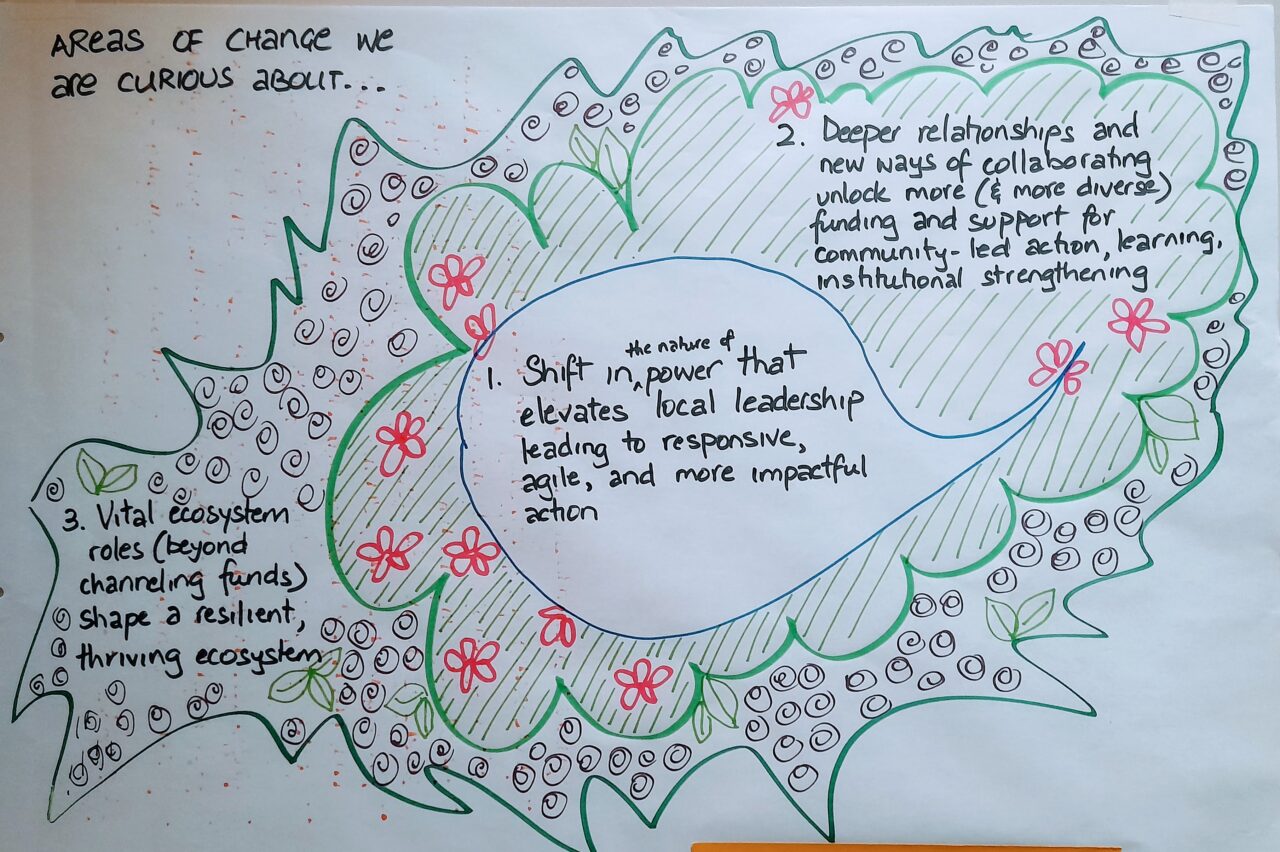 AREAS OF CHANGE WE
are CURIOUS ABOUT...
2. Deeper relationships and
new ways of collaborating
unlock more (& more diverse)
funding and support for
community-led action, learning,
institutional strengthening
1. Shift in ^ the nature of power that
elevates local leadership
leading to responsive,
agile, and more impactful
action
3. Vital ecosystem
roles (beyond
channeling funds)
shape a resilient,
thriving ecosystem